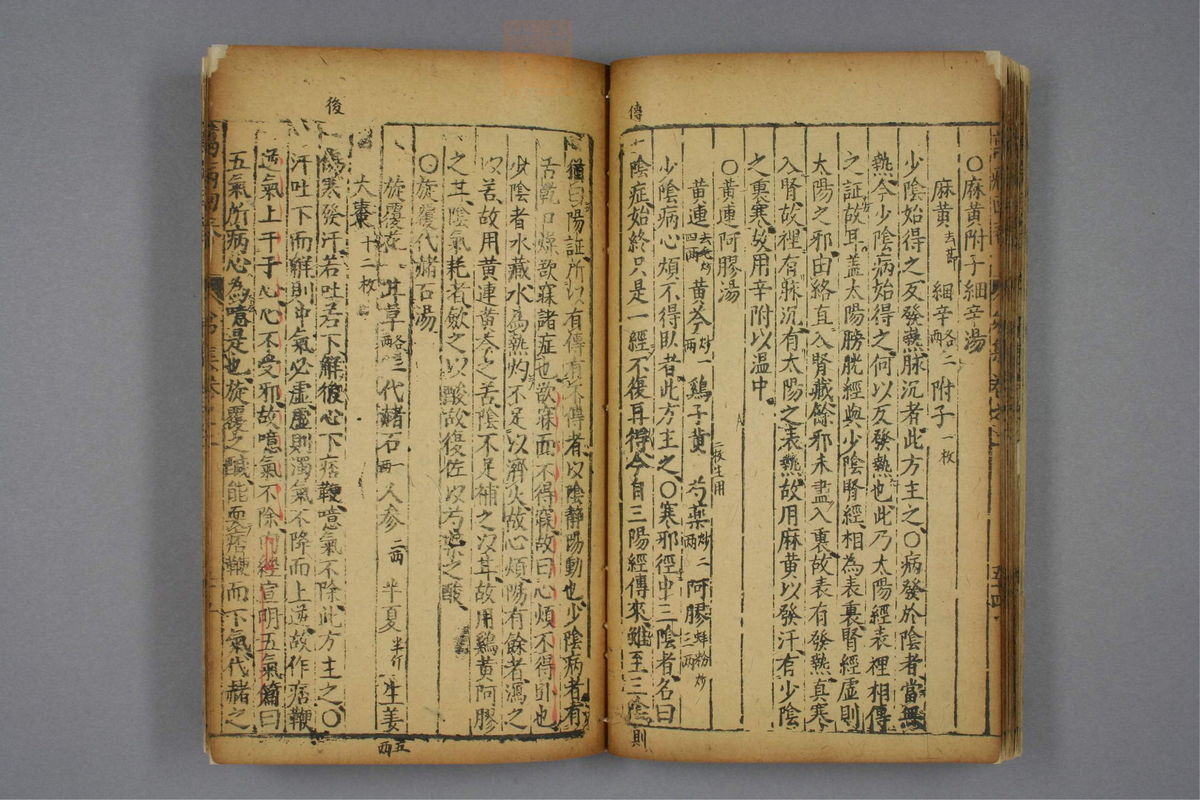 〇麻黄附子細辛湯
麻黄去節 細辛各二両 附子一枚
少陰始得之反發熱脉沉者此方主之〇病發於陰者當無
熱今少陰病始得之何以反發熱也此乃太陽經表裡相傳
之証故耳蓋太陽膀胱經與少陰腎經相為表裏腎經虛則
太陽之邪由絡直入腎藏餘邪未盡入裏故表有發熱真寒
入腎故裡有脉沉有太陽之表熱故用麻黄以發汗有少陰
之裏寒故用辛附以温中
〇黄連阿膠湯
黄連去毛炒四両 黄芩炒一両 鷄子黄二枚生用 芍薬炒二両 阿膠蚌粉炒三両
少陰病心煩不得臥者此方主之〇寒邪徑中三陰者名曰
傳
陰症始終只是一經不復再得今自三陽經傳來雖至三陰
則
猶曰陽証所以有傳有不傳者以陰静陽動也少陰病者有
舌乾口燥欲寐諸症也欲寐而不得寐故曰心煩不得卧也
少陰者水藏水為熱灼不足以濟火故心煩陽有餘者瀉之
以苦故用黄連黄芩之苦陰不足補之以甘故用鷄黄阿膠
之甘陰氣耗者斂之以酸故復佐以芍薬之酸
〇旋覆代赭石湯
旋覆花 甘草各三両 代赭石一両 人参二両 半夏半斤 生姜五両
大棗十二枚
後
傷寒發汗若吐若下解後心下痞鞕噫氣不除此方主之〇
汗吐下而解則中氣必虛虛則濁氣不降而上逆故作痞鞕
逆氣上干于心心不受邪故噫氣不除内經宣明五氣篇曰
五氣所病心為噫是也旋覆之醎能耎痞鞕而下氣代赭之